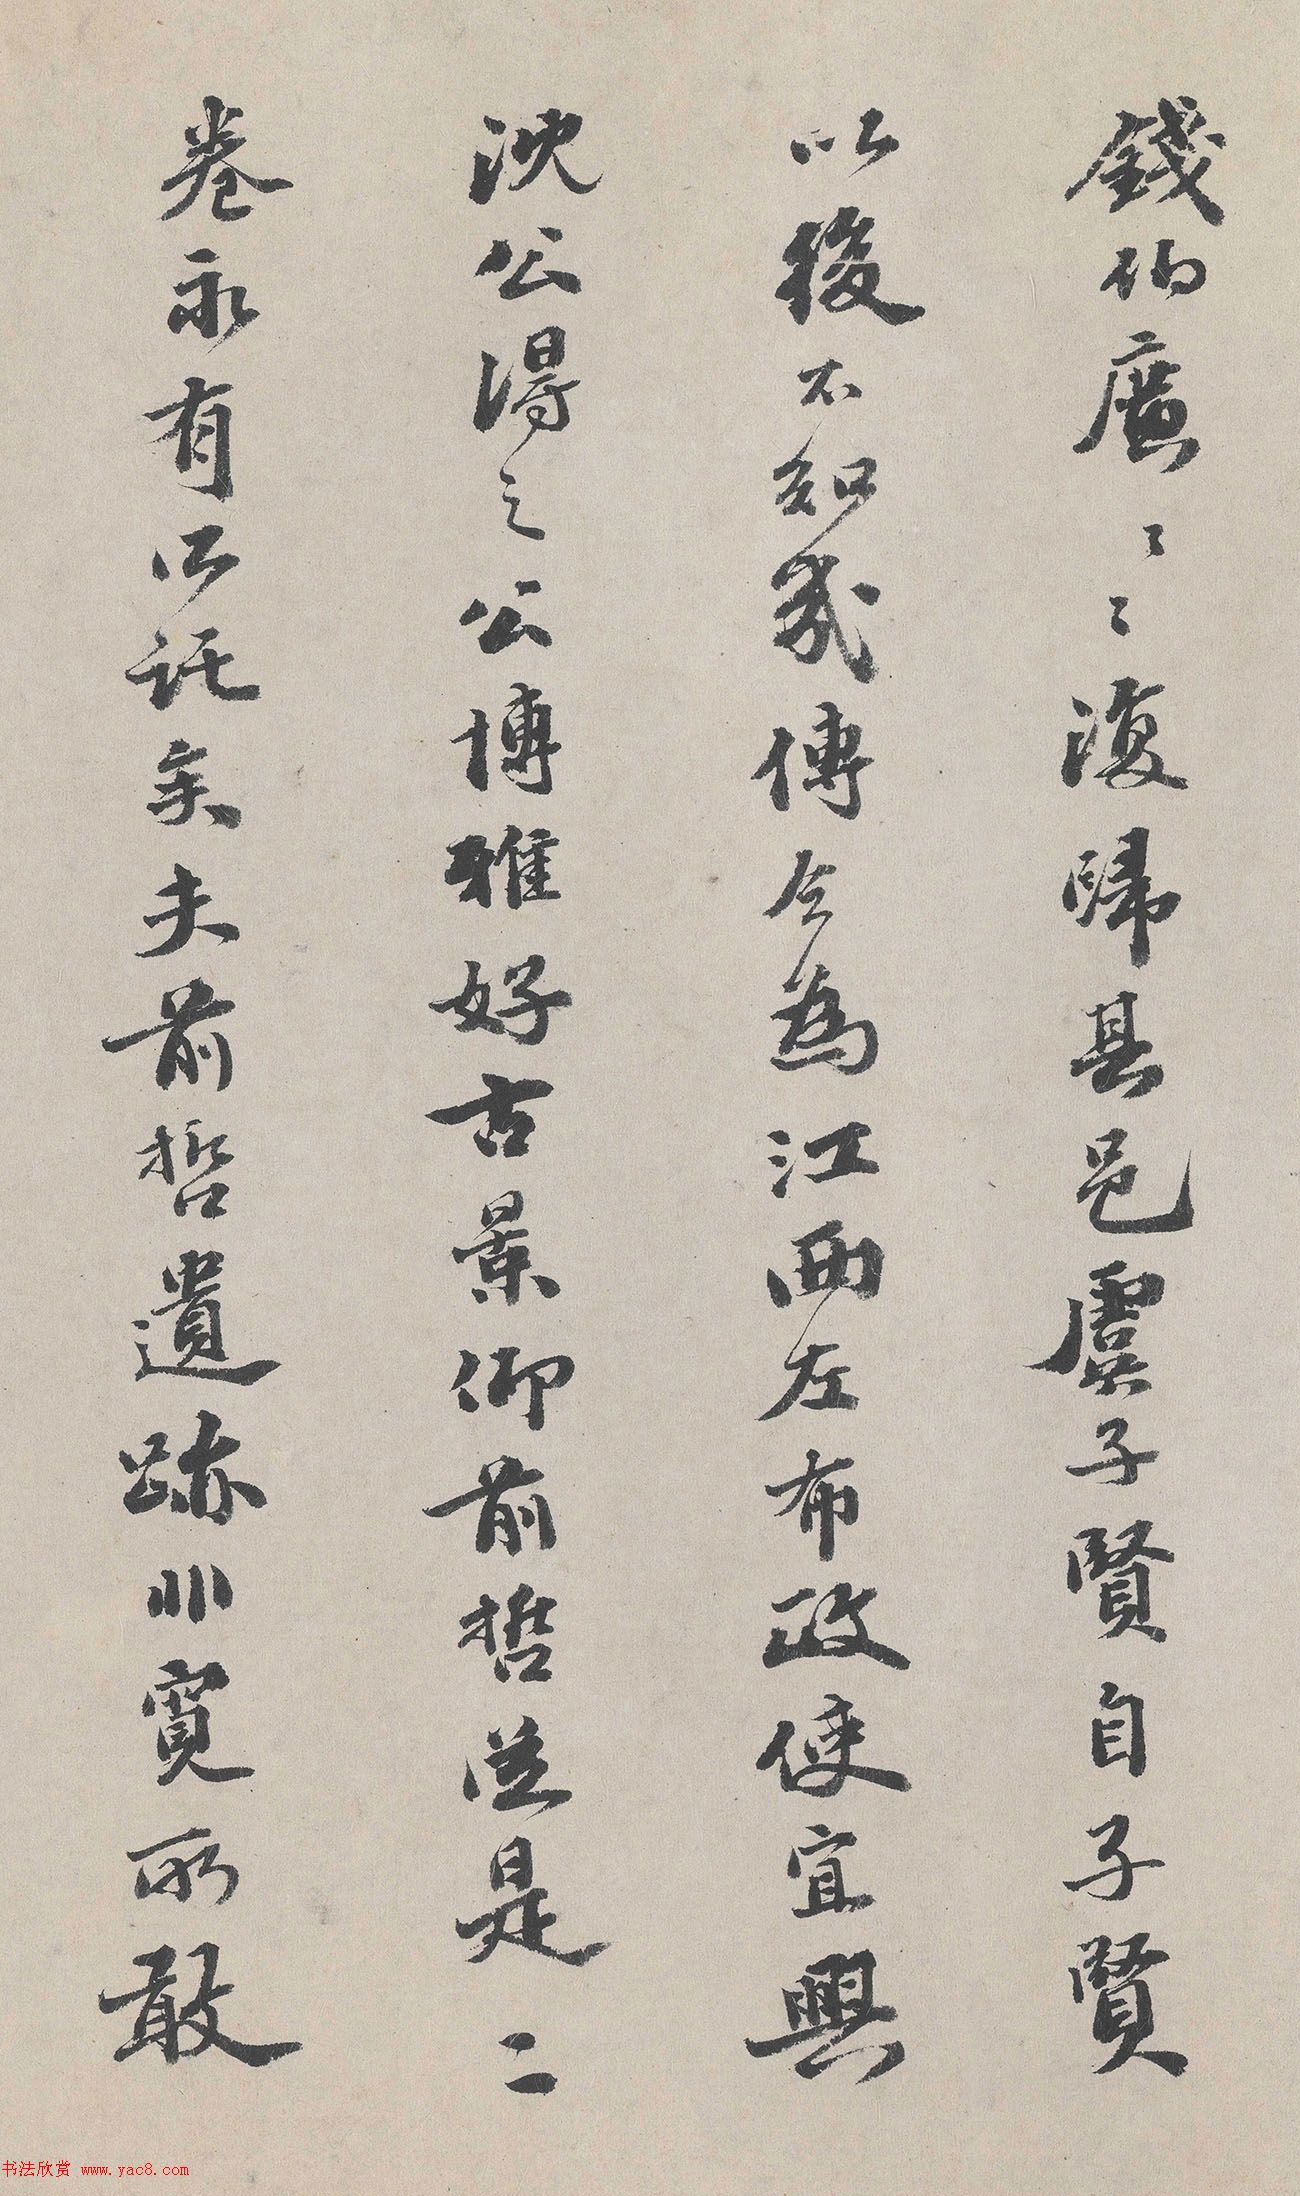 錢伯廣〻〻復歸其邑虞子賢自子賢
以後不知幾傳今為江西左布政使宜興
沈公得之公博雅好古景仰前哲從是二
卷永有所託矣夫前哲遺跡非寬所敢
书法欣赏 www.yac8.com